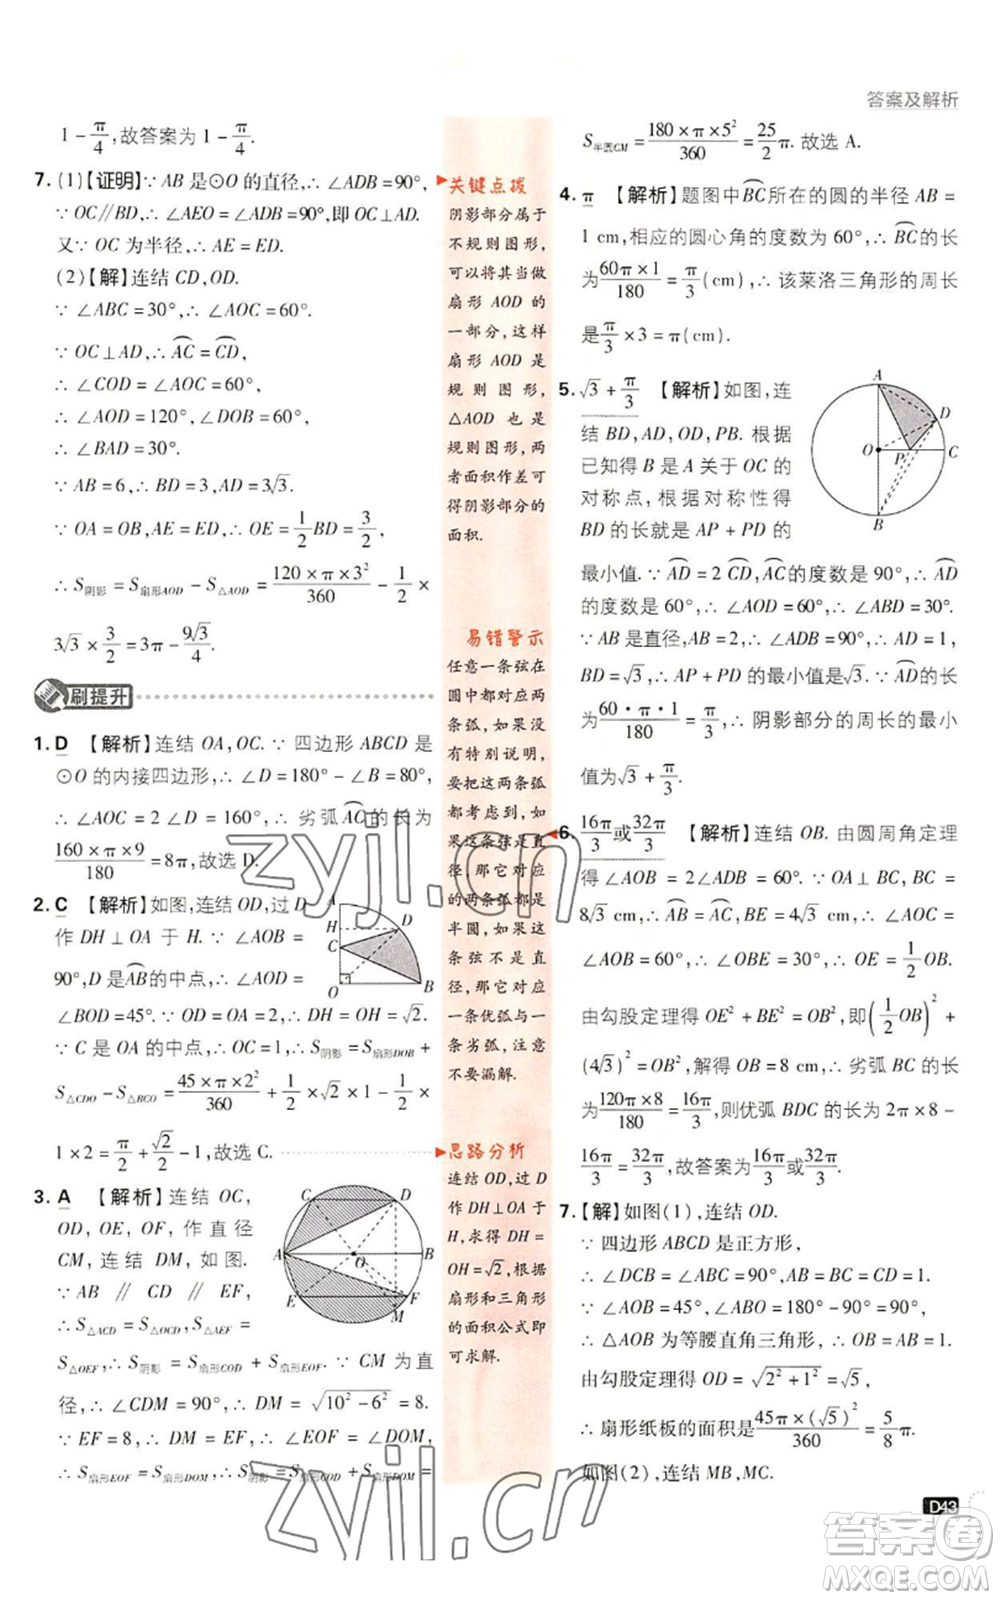 答案及解析
1－π/4,故答案为 1－π/4.
7. (1)【证明】∵ AB 是⊙O 的直径,∴ ∠ADB=90°,
∵ OC∥BD,∴ ∠AEO=∠ADB=90°,即 OC⊥AD.
又∵ OC 为半径,∴ AE=ED.
(2)【解】连结 CD,OD.
∵ ∠ABC=30°,∴ ∠AOC=60°.
∵ OC⊥AD,∴ ⌒AC=⌒CD,
∴ ∠COD=∠AOC=60°,
∴ ∠AOD=120°,∠DOB=60°,
∴ ∠BAD=30°.
∵ AB=6,∴ BD=3,AD=3√3.
∵ OA=OB,AE=ED,∴ OE=1/2BD=3/2,
∴ S阴影=S扇形AOD－S△AOD=(120×π×3²)/360－1/2×
3√3×3/2=3π－9√3/4.
刷提升
1. D 【解析】连结 OA,OC.∵ 四边形 ABCD 是
⊙O 的内接四边形,∴ ∠D=180°－∠B=80°,
∴ ∠AOC=2∠D=160°,∴ 劣弧⌒AC的长为
(160×π×9)/180=8π,故选 D.
2. C 【解析】如图,连结 OD,过 D
作 DH⊥OA 于 H.∵ ∠AOB=
90°,D 是⌒AB的中点,∴ ∠AOD=
∠BOD=45°.∵ OD=OA=2,∴ DH=OH=√2.
∵ C 是 OA 的中点,∴ OC=1,∴ S阴影=S扇形DOB+
S△CDO－S△BCO=(45×π×2²)/360+1/2×√2×1－1/2×
1×2=π/2+√2/2－1,故选 C.
H
D
C
O
B
3. A 【解析】连结 OC,
OD,OE,OF,作直径
CM,连结 DM,如图.
∵ AB ∥ CD ∥ EF,
∴ S△ACD=S△OCD,S△AEF=
S△OEF,∴ S阴影=S扇形COD+S扇形EOF.∵ CM 为直
径,∴ ∠CDM=90°,∴ DM=√(10²－6²)=8.
∵ EF=8,∴ DM=EF,∴ ∠EOF=∠DOM,
∴ S扇形EOF=S扇形DOM,∴ S阴影=S扇形COD+S扇形DOM=
C
D
A
O
B
E
F
M
关键点拨
阴影部分属于
不规则图形,
可以将其当做
扇形 AOD 的
一部分,这样
扇形 AOD 是
规则图形,
△AOD 也是
规则图形,两
者面积作差可
得阴影部分的
面积.
易错警示
任意一条弦在
圆中都对应两
条弧,如果没
有特别说明,
要把这两条弧
都考虑到,如
果这条弦是直
径,那它对应
的两条弧都是
半圆,如果这
条弦不是直
径,那它对应
一条优弧与一
条劣弧,注意
不要漏解.
思路分析
连结 OD,过 D
作 DH⊥OA 于
H,求得 DH=
OH=√2,根据
扇形和三角形
的面积公式即
可求解.
S半圆CM=(180×π×5²)/360=25/2π. 故选 A.
4. π 【解析】题图中⌒BC所在的圆的半径 AB=
1 cm,相应的圆心角的度数为 60°,∴ ⌒BC的长
为(60π×1)/180=π/3(cm),∴ 该莱洛三角形的周长
是π/3×3=π(cm).
5. √3+π/3 【解析】如图,连
结 BD,AD,OD,PB. 根据
已知得 B 是 A 关于 OC 的
对称点,根据对称性得
BD 的长就是 AP+PD 的
最小值.∵ ⌒AD=2⌒CD,⌒AC的度数是 90°,∴ ⌒AD
的度数是 60°,∴ ∠AOD=60°,∴ ∠ABD=30°.
∵ AB 是直径,AB=2,∴ ∠ADB=90°,AD=1,
∴ BD=√3,∴ AP+PD 的最小值是√3.∵ ⌒AD的长
为(60·π·1)/180=π/3,∴ 阴影部分的周长的最小
值为√3+π/3.
A
D
O
P
C
B
6. 16π/3或32π/3 【解析】连结 OB. 由圆周角定理
得 ∠AOB=2∠ADB=60°.∵ OA⊥BC,BC=
8√3 cm,∴ ⌒AB=⌒AC,BE=4√3 cm,∴ ∠AOC=
∠AOB=60°,∴ ∠OBE=30°,∴ OE=1/2OB.
由勾股定理得 OE²+BE²=OB²,即(1/2OB)²+
(4√3)²=OB²,解得 OB=8 cm,∴ 劣弧 BC 的长
为(120π×8)/180=16π/3,则优弧 BDC 的长为 2π×8－
16π/3=32π/3,故答案为16π/3或32π/3.
7. 【解】如图(1),连结 OD.
∵ 四边形 ABCD 是正方形,
∴ ∠DCB=∠ABC=90°,AB=BC=CD=1.
∵ ∠AOB=45°,∠ABO=180°－90°=90°,
∴ △AOB 为等腰直角三角形,∴ OB=AB=1.
由勾股定理得 OD=√(2²+1²)=√5,
∴ 扇形纸板的面积是(45π×(√5)²)/360=5/8π.
如图(2),连结 MB,MC.
D43
zyjl.cn
zyjl.cn
答案圈
MXQE.COM